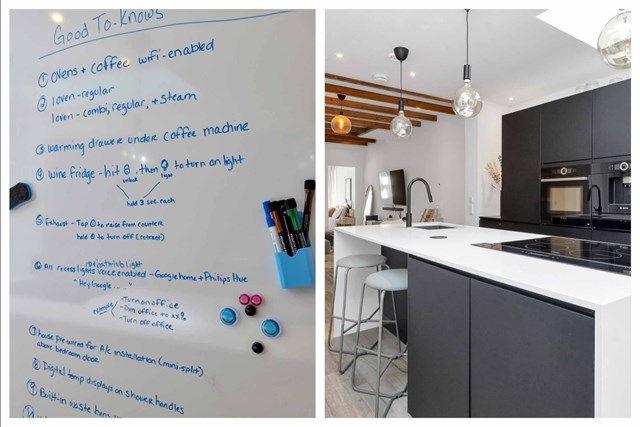 Good To-Knows
① Ovens + coffee wifi-enabled
② 1 oven - regular
1 oven - combi, regular, + steam
③ warming drawer under coffee machine
④ wine fridge - hit, then to turn on light
unlock light
hold 3 sec. each
⑤ Exhaust - Tap ① to raise from counters
hold to turn off (retract)
⑥ All recess lights voice enabled - Google home + Philips Hue
"Hey Google...."
- Turn on office
- Dim office to xx%
- Turn off office
⑦ house pre wired for A/c installation (mini-split)
above bedroom door
⑧ Digital temp displays on shower handles
⑨ Built-in waste